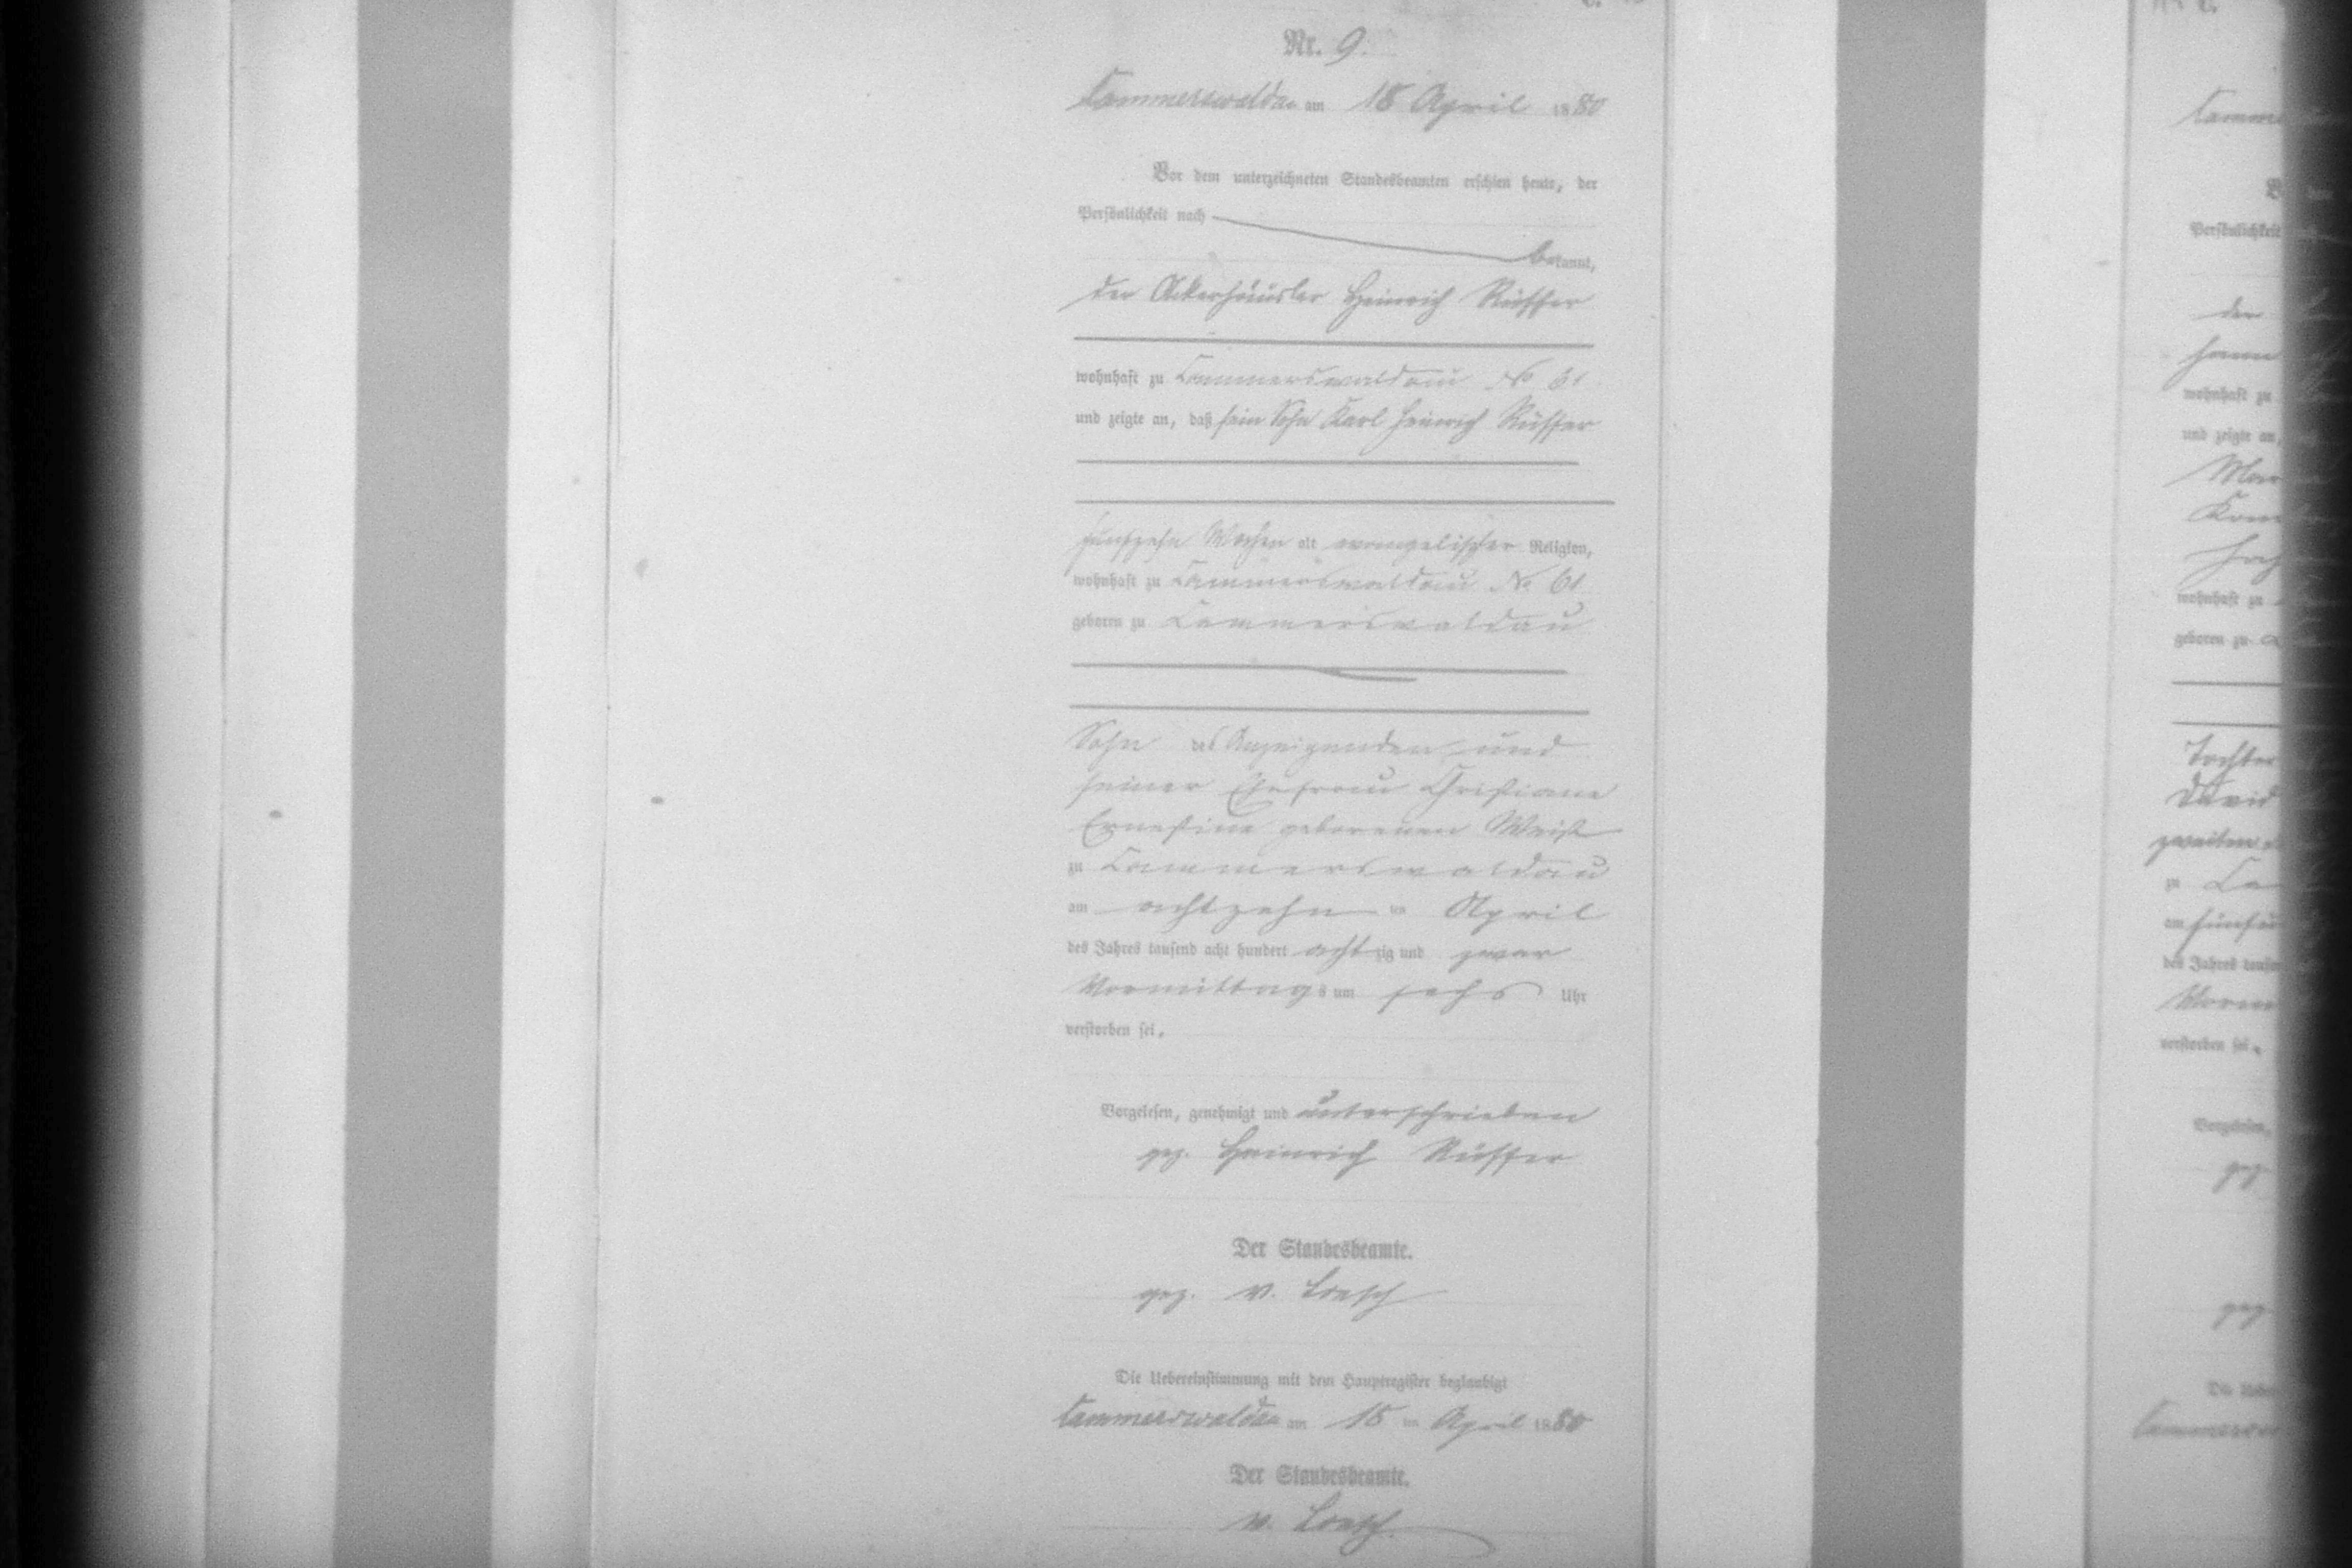 Nr. 9.
Cammerswaldau am 18 April 1880
Vor dem unterzeichneten Standesbeamten erschien heute, der
Persönlichkeit nach
bekannt,
der Ackerhäusler Heinrich Rüffer
wohnhaft zu Cammerswaldau No 61
und zeigte an, daß sein Sohn Karl Heinrich Rüffer
fünfzehn Wochen alt evangelischer Religion,
wohnhaft zu Cammerswaldau No. 61
geboren zu Cammerswaldau
Sohn des Anzeigenden und
seiner Ehefrau Christiane
Ernestine geborenen Weist
zu Cammerswaldau
am achtzehn ten April
des Jahres tausend acht hundert achtzig und zwar
Vormittags um sechs Uhr
verstorben sei.
Vorgelesen, genehmigt und unterschrieben
gez. Heinrich Rüffer
Der Standesbeamte.
gez. v. Loesch
Die Uebereinstimmung mit dem Hauptregister beglaubigt
Cammerswaldau am 18 ten April 1880
Der Standesbeamte.
v. Loesch.
Persönlichkeit
der
wohnhaft zu
und zeigte an,
wohnhaft zu
geboren zu
Tochter
David
zweiten
zu
am
des Jahres
verstorben sei.
Vorgelesen,
gez
gez